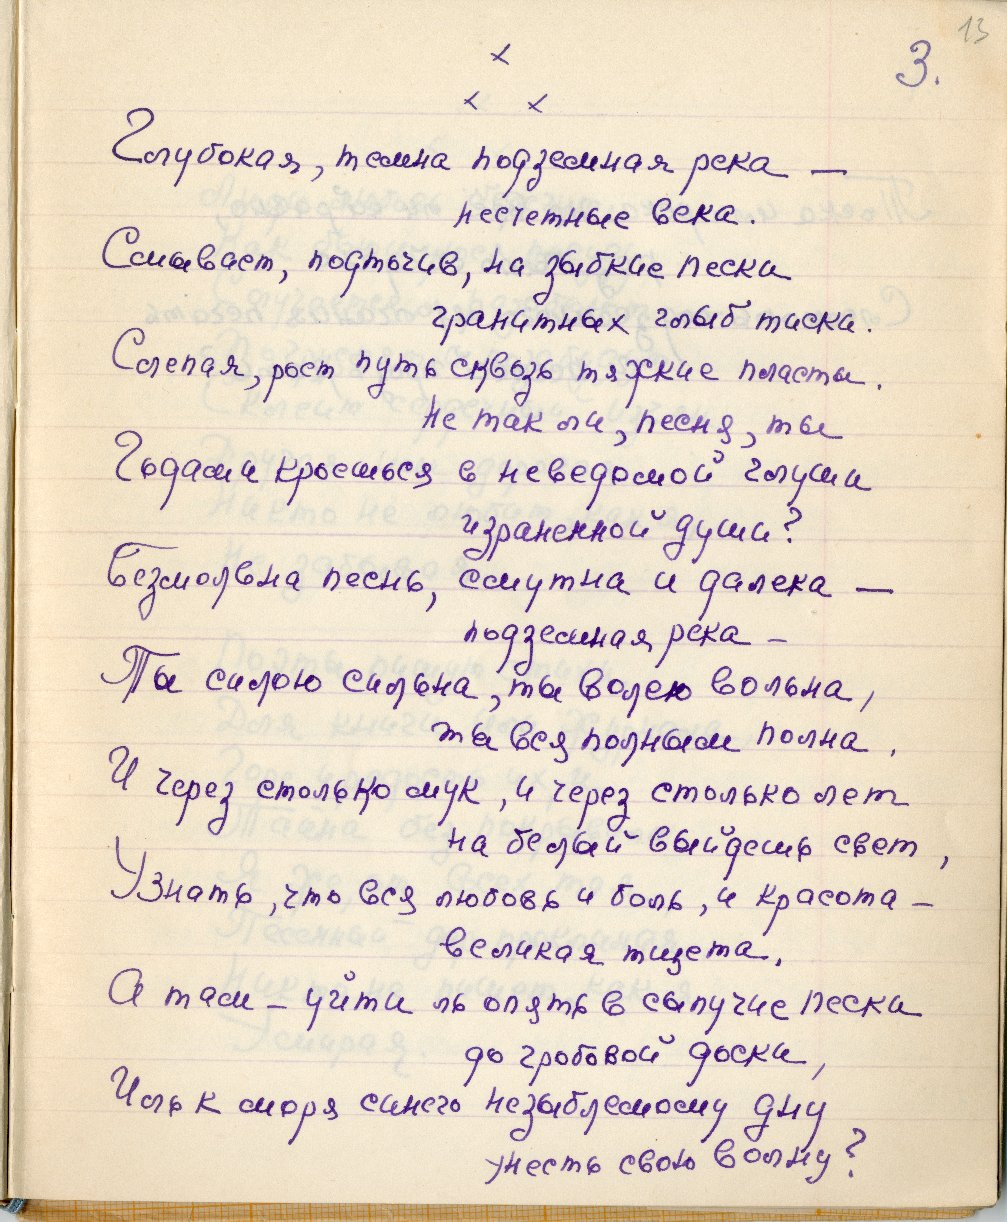 13
3.
х
х х
Глубокая, темна подземная река —
несчетные века.
Смывает, подточив, на зыбкие пески
гранитных глыб тиски.
Слепая, роет путь сквозь тяжкие пласты.
Не так ли, песня, ты
Годами кроешься в неведомой глуши
израненной души?
Безмолвна песнь, смутна и далека —
подземная река —
Ты силою сильна, ты волею вольна,
ты вся полным полна,
И через столько мук, и через столько лет
на белый выйдешь свет,
Узнать, что вся любовь и боль, и красота —
великая тщета.
А там — уйти ль опять в сыпучие пески
до гробовой доски,
Иль к моря синего незыблемому дну
унесть свою волну?